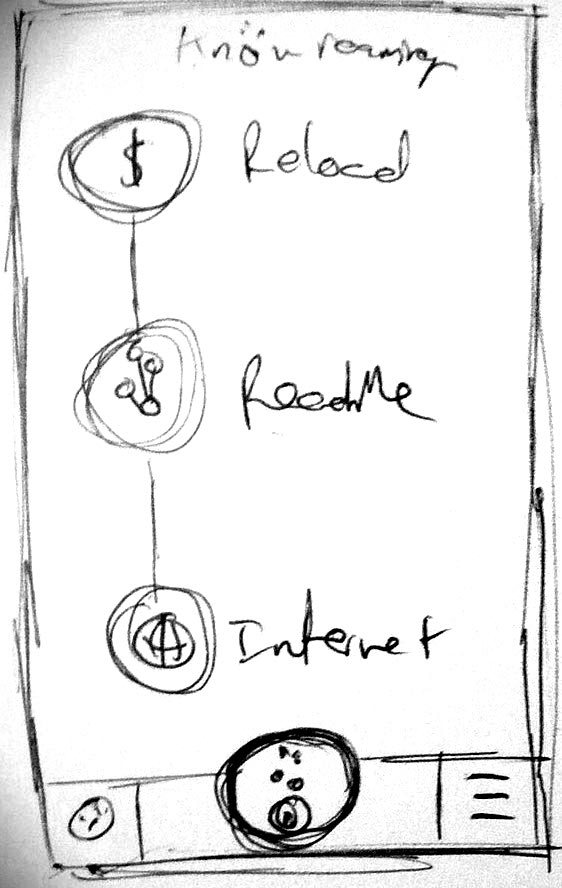 Knöw roaming
$
Reload
ReadMe
Internet